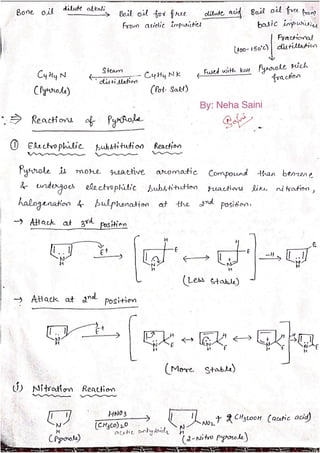 Bone oil dilute alkali Boil oil for free dilute acid Boil oil free from
From acidic impurities basic impurities
(100-150°c) Fractional distillation
C4H5N Steam distillation C4H4NK Fused with KOH Pyrrole rich
(Pyrrole) (Pot. Salt) fraction
By: Neha Saini
Saini
⇒ Reactions of Pyrrole
① Electrophilic substitution Reaction
Pyrrole is more reactive aromatic compound than benzene
& undergoes electrophilic substitution reactions like nitration,
halogenation & sulphonation at the 2nd position.
→ Attack at 3rd position
N H E+ H E N H H E N H -H E N H
(Less stable)
→ Attack at 2nd position
N H E+ N H H E N H H E N H H E
(More stable)
(i) Nitration Reaction
N H HNO3 (CH3CO)2O acetic anhydride N H NO2 + 2 CH3COOH (acetic acid)
(Pyrrole) (2-Nitro pyrrole)